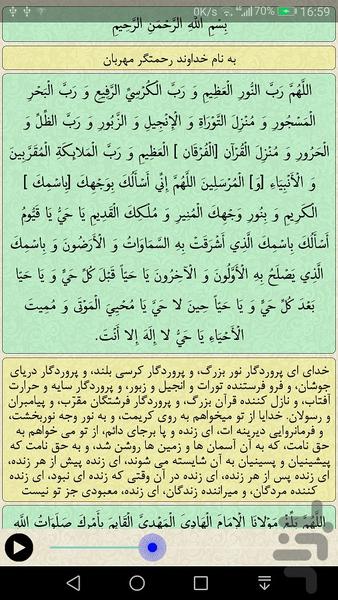 0B/s 4G 70% 16:59
بِسْمِ اللَّهِ الرَّحْمَنِ الرَّحِيمِ
به نام خداوند رحمتگر مهربان
اللَّهُمَّ رَبَّ النُّورِ الْعَظِيمِ وَ رَبَّ الْكُرْسِيِّ الرَّفِيعِ وَ رَبَّ الْبَحْرِ
الْمَسْجُورِ وَ مُنْزِلَ التَّوْرَاةِ وَ الْإِنْجِيلِ وَ الزَّبُورِ وَ رَبَّ الظِّلِّ وَ
الْحَرُورِ وَ مُنْزِلَ الْقُرْآنِ [الْفُرْقَانِ ] الْعَظِيمِ وَ رَبَّ الْمَلائِكَةِ الْمُقَرَّبِينَ
وَ الْأَنْبِيَاءِ [وَ] الْمُرْسَلِينَ اللَّهُمَّ إِنِّي أَسْأَلُكَ بِوَجْهِكَ [بِاسْمِكَ ]
الْكَرِيمِ وَ بِنُورِ وَجْهِكَ الْمُنِيرِ وَ مُلْكِكَ الْقَدِيمِ يَا حَيُّ يَا قَيُّومُ
أَسْأَلُكَ بِاسْمِكَ الَّذِي أَشْرَقَتْ بِهِ السَّمَاوَاتُ وَ الْأَرَضُونَ وَ بِاسْمِكَ
الَّذِي يَصْلَحُ بِهِ الْأَوَّلُونَ وَ الْآخِرُونَ يَا حَيّاً قَبْلَ كُلِّ حَيٍّ وَ يَا حَيّاً
بَعْدَ كُلِّ حَيٍّ وَ يَا حَيّاً حِينَ لا حَيَّ يَا مُحْيِيَ الْمَوْتَى وَ مُمِيتَ
الْأَحْيَاءِ يَا حَيُّ لا إِلَهَ إِلا أَنْتَ.
خدای ای پروردگار نور بزرگ، و پروردگار کرسی بلند، و پروردگار دریای
جوشان، و فرو فرستنده تورات و انجیل و زبور، و پروردگار سایه و حرارت
آفتاب، و نازل کننده قرآن بزرگ، و پروردگار فرشتگان مقرّب، و پیامبران
و رسولان. خدایا از تو میخواهم به روی کریمت، و به نور وجه نوربخشت،
و فرمانروایی دیرینه ات، ای زنده و پا برجای دائم، از تو می خواهم به
حق نامت، که به آن آسمان ها و زمین ها روشن شد، و به حق نامت که
پیشینیان و پسینیان به آن شایسته می شوند، ای زنده پیش از هر زنده،
ای زنده پس از هر زنده، ای زنده در آن وقتی که زنده ای نبود، ای زنده
کننده مردگان، و میراننده زندگان، ای زنده، معبودی جز تو نیست
اللَّهُمَّ بَلِّغْ مَوْلانَا الْإِمَامَ الْهَادِيَ الْمَهْدِيَّ الْقَائِمَ بِأَمْرِكَ صَلَوَاتُ اللَّهِ